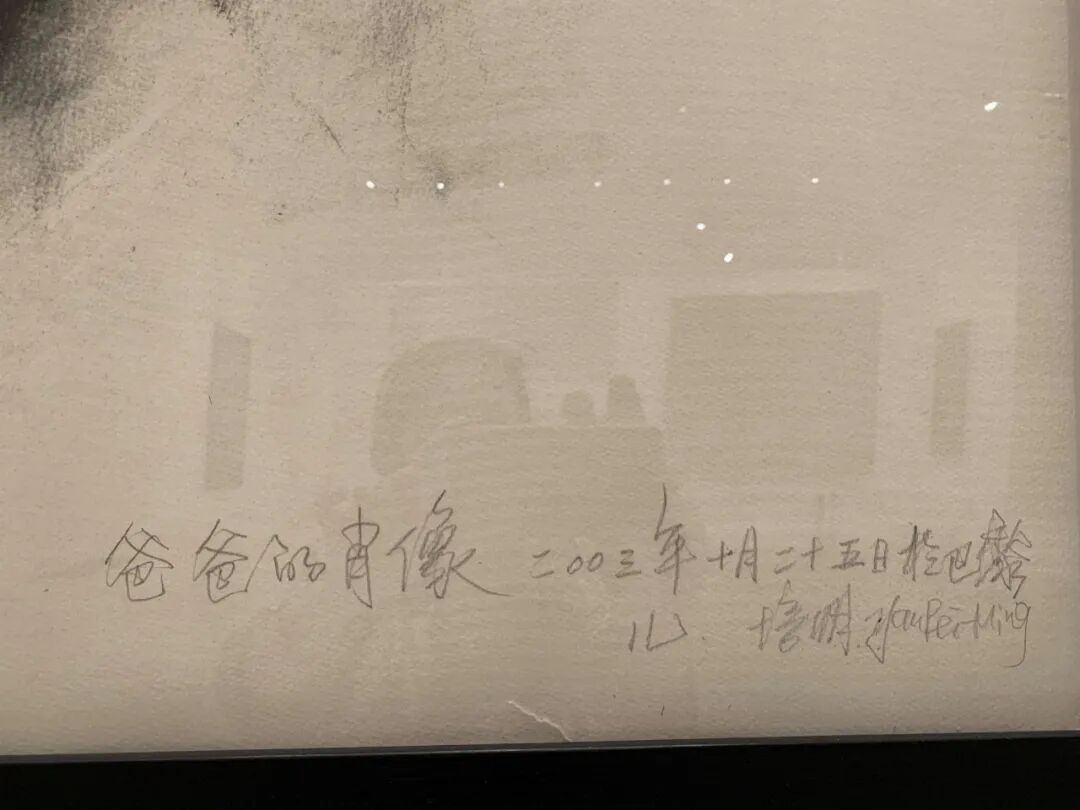 爸爸的肖像 二〇〇三年十月二十五日於巴黎
儿 培明 Yan Pei-Ming